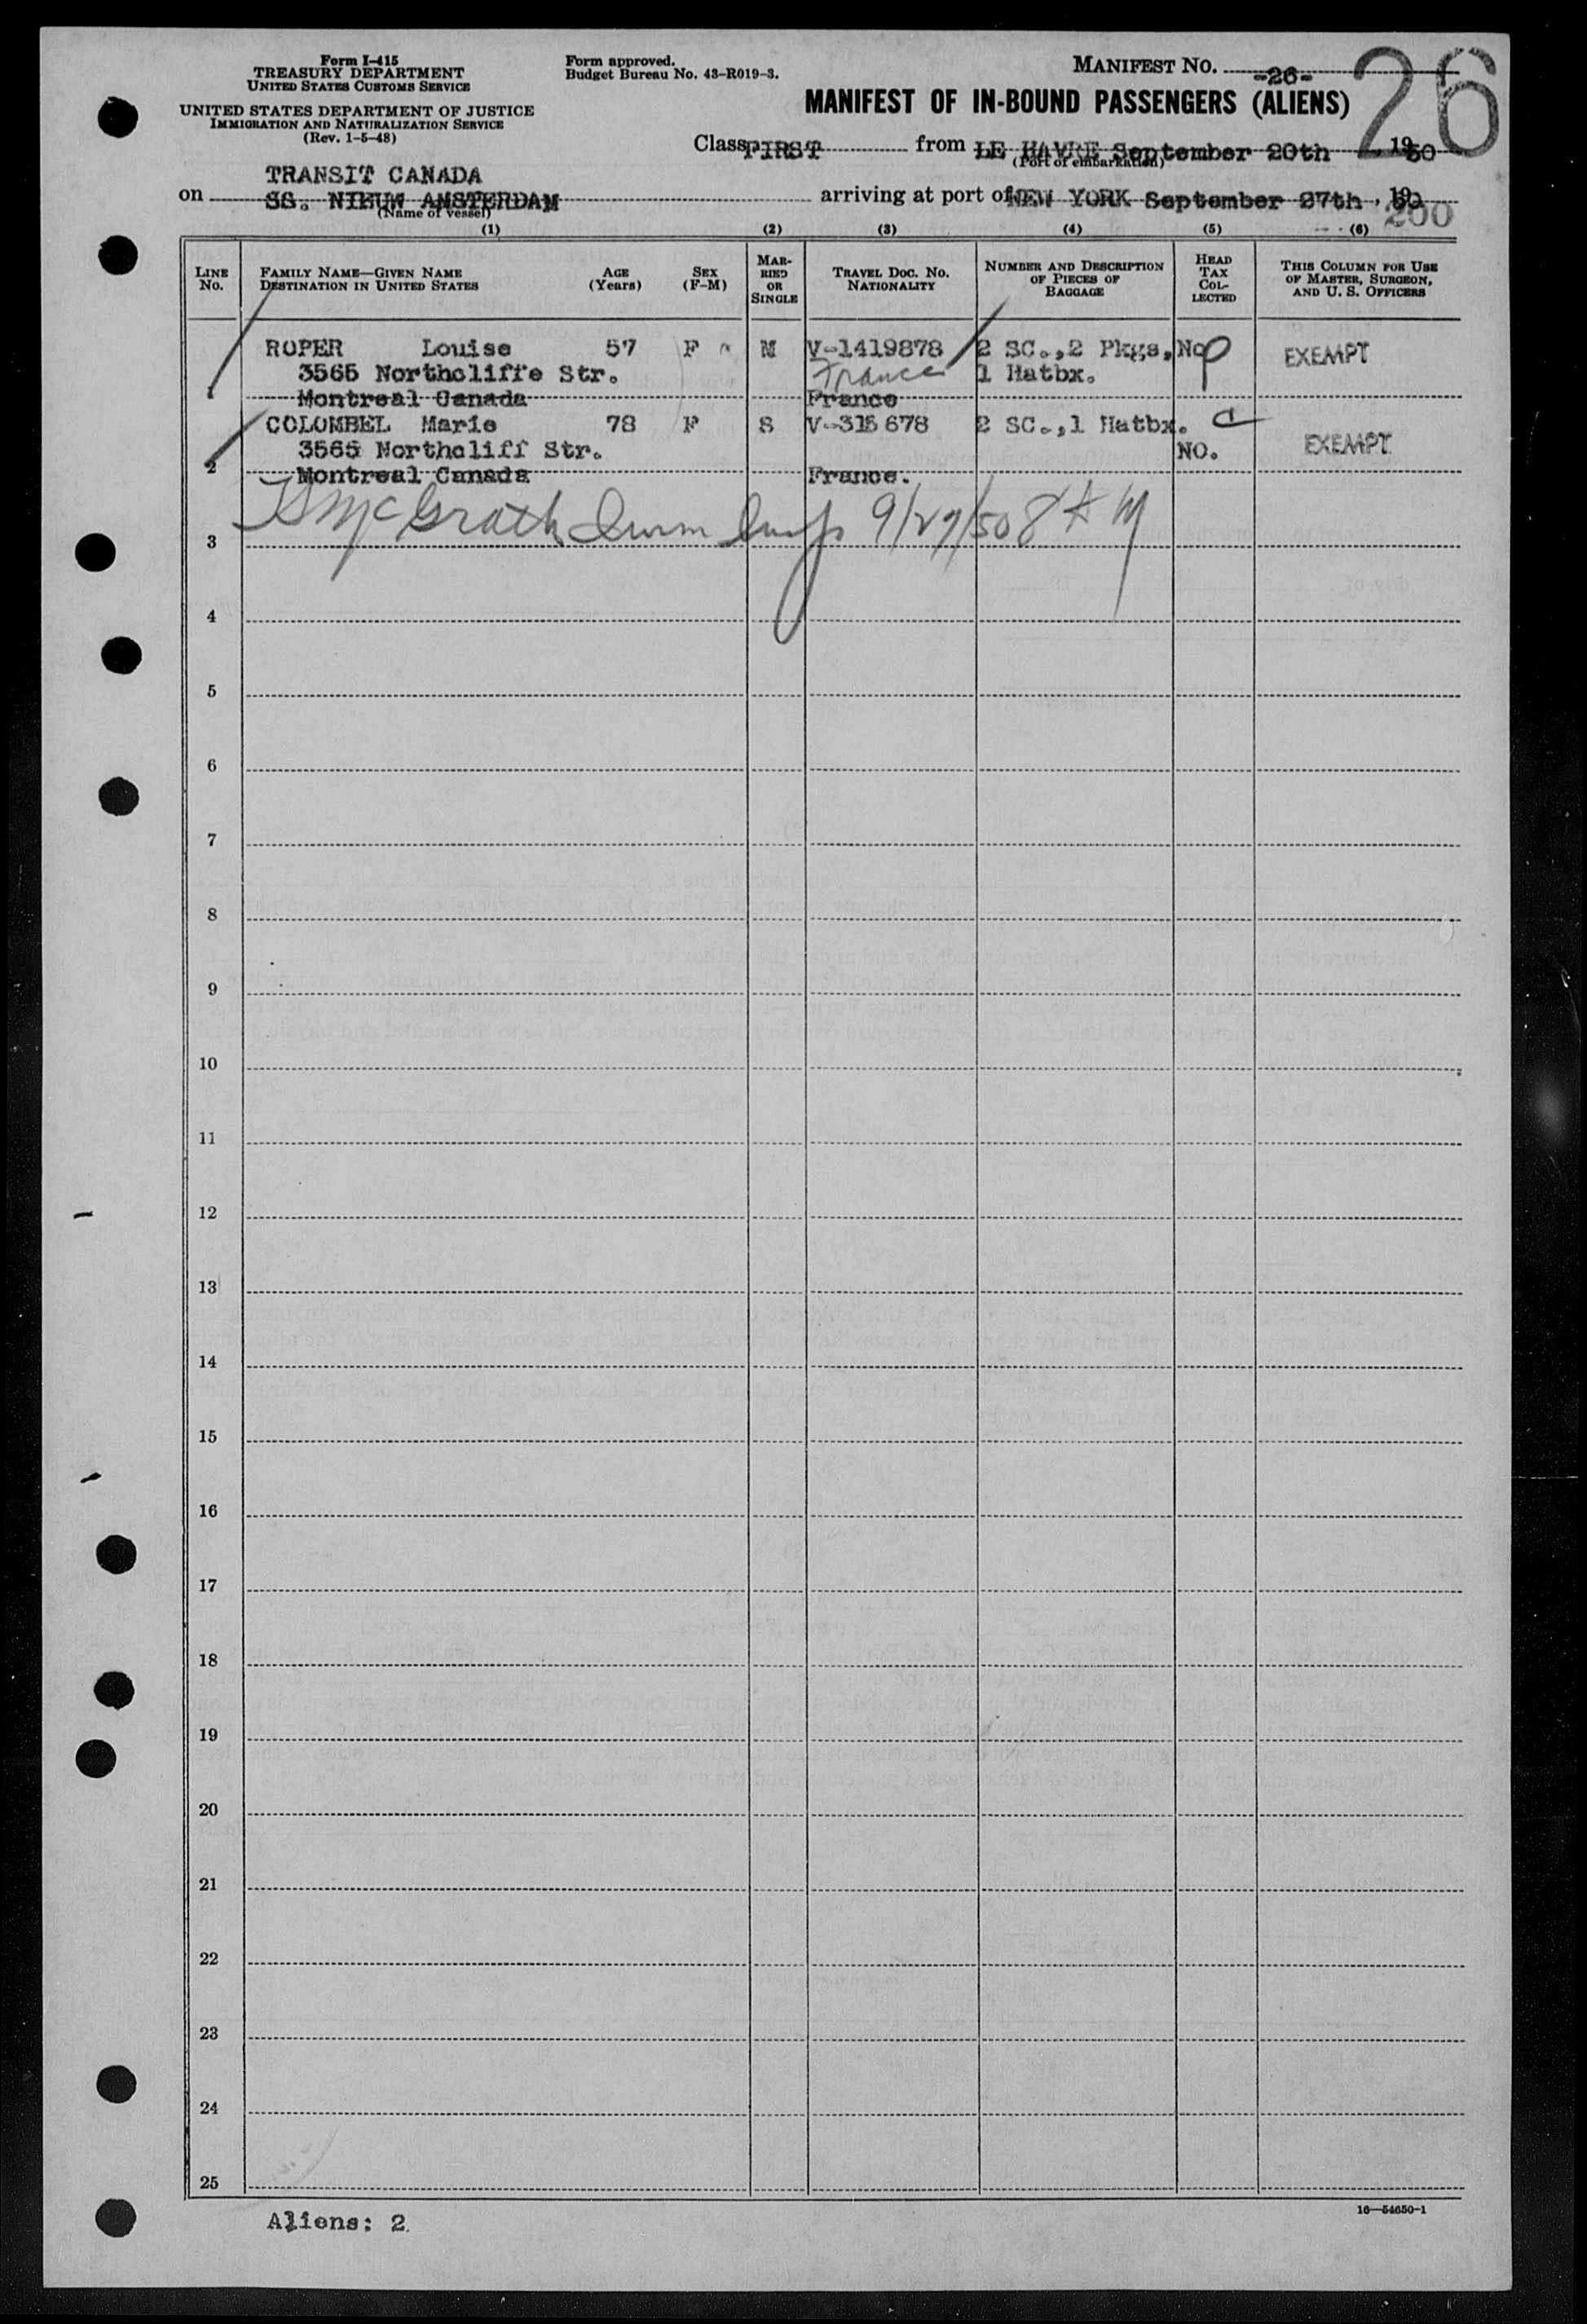 Form I-415
TREASURY DEPARTMENT
UNITED STATES CUSTOMS SERVICE
UNITED STATES DEPARTMENT OF JUSTICE
IMMIGRATION AND NATURALIZATION SERVICE
(Rev. 1-5-48)
Form approved.
Budget Bureau No. 43-R019-3.
MANIFEST NO. -26-
26
MANIFEST OF IN-BOUND PASSENGERS (ALIENS)
Class FIRST from LE HAVRE September 20th 1950
(Port of embarkation)
TRANSIT CANADA
on SS. NIEUW AMSTERDAM arriving at port of NEW YORK September 27th, 1950
(Name of vessel)
200
(1) (2) (3) (4) (5) (6)
LINE No. FAMILY NAME—GIVEN NAME DESTINATION IN UNITED STATES AGE (Years) SEX (F-M) MARRIED OR SINGLE TRAVEL DOC. NO. NATIONALITY NUMBER AND DESCRIPTION OF PIECES OF BAGGAGE HEAD TAX COLLECTED THIS COLUMN FOR USE OF MASTER, SURGEON, AND U. S. OFFICERS
ROPER Louise 57 F M V-1419878 2 SC.,2 Pkgs, No EXEMPT
3565 Northcliffe Str. France 1 Hatbx.
1 Montreal Canada France
COLOMBEL Marie 78 F S V-315678 2 SC.,1 Hatbx.
3565 Northcliff Str. NO. EXEMPT
2 Montreal Canada France.
McGrath 9/27/50
3
4
5
6
7
8
9
10
11
12
13
14
15
16
17
18
19
20
21
22
23
24
25
Aliens: 2
16—54650-1